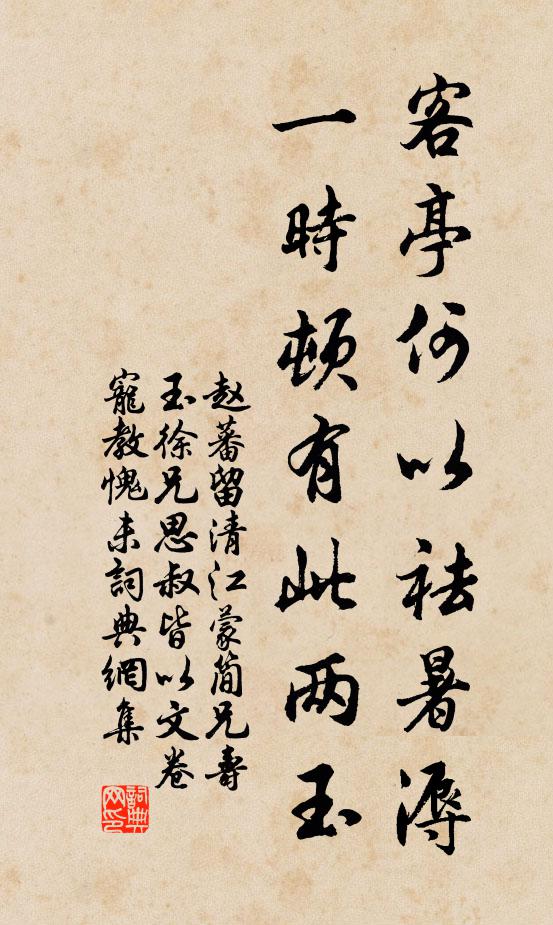 客亭何以祛暑溽
一時頓有此两玉
赵蕃留清江蒙简兄壽
玉徐兄思叔皆以文卷
寵教愧未詞典網集
詞典
网印